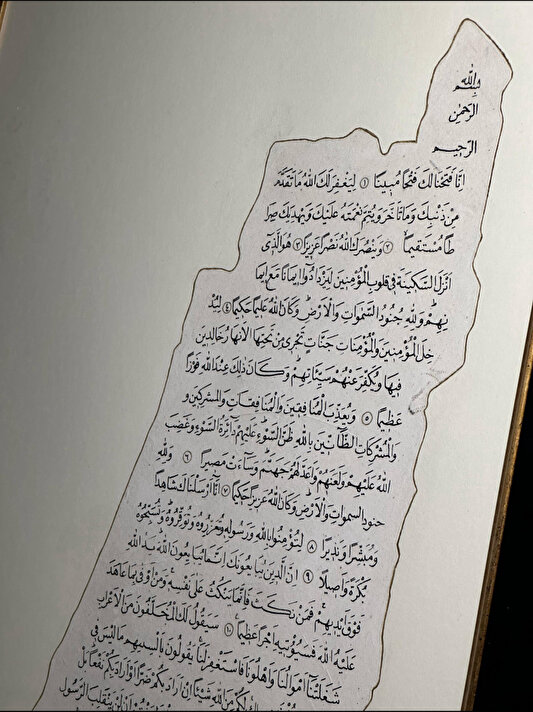 بسم الله
الرحمن
الرحيم
انا فتحنا لك فتحا مبينا ١ ليغفر لك الله ما تقدم
من ذنبك وما تأخر ويتم نعمته عليك ويهديك صرا
طا مستقيما ٢ وينصرك الله نصرا عزيزا ٣ هو الذى
انزل السكينة فى قلوب المؤمنين ليزدادوا ايمانا مع ايما
نهم ولله جنود السموات والارض وكان الله عليما حكيما ٤ ليد
خل المؤمنين والمؤمنات جنات تجرى من تحتها الانهار خالدين
فيها ويكفر عنهم سيئاتهم وكان ذلك عند الله فوزا
عظيما ٥ ويعذب المنافقين والمنافقات والمشركين و
المشركات الظآنين بالله ظن السوء عليهم دآئرة السوء وغضب
الله عليهم ولعنهم واعد لهم جهنم وسآءت مصيرا ٦ ولله
جنود السموات والارض وكان الله عزيزا حكيما ٧ انا ارسلناك شاهدا
ومبشرا ونذيرا ٨ لتؤمنوا بالله ورسوله وتعزروه وتوقروه وتسبحوه
بكرة واصيلا ٩ ان الذين يبايعونك انما يبايعون الله يد الله
فوق ايديهم فمن نكث فانما ينكث على نفسه ومن اوفى بما عاهد
عليه الله فسيؤتيه اجرا عظيما ١٠ سيقول لك المخلفون من الاعراب
شغلتنا اموالنا واهلونا فاستغفر لنا يقولون بالسنتهم ما ليس فى
لكم من الله شيئا ان اراد بكم ضرا او اراد بكم نفعا بل
ان لن ينقلب الرسول